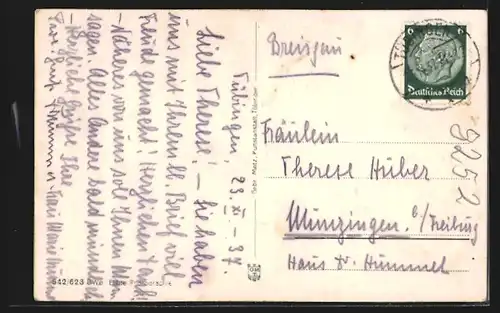 Tübingen, 23. XI. 37.
Liebe Therese! – Sie haben
uns mit Ihrem lb. Brief viel
Freude gemacht! Herzlichen Dank!
– Näheres von uns soll Ihnen
sagen. Alles Andere bald mündlich
– Herzliche Grüsse Ihre
Gebr. Metz, Kunstanstalt, Tübingen
642/623
Breisgau
TÜBINGEN
6 6
Deutsches Reich
Fräulein
Therese Huber
Munzingen b/Freiburg
Haus Dr Hummel
9252